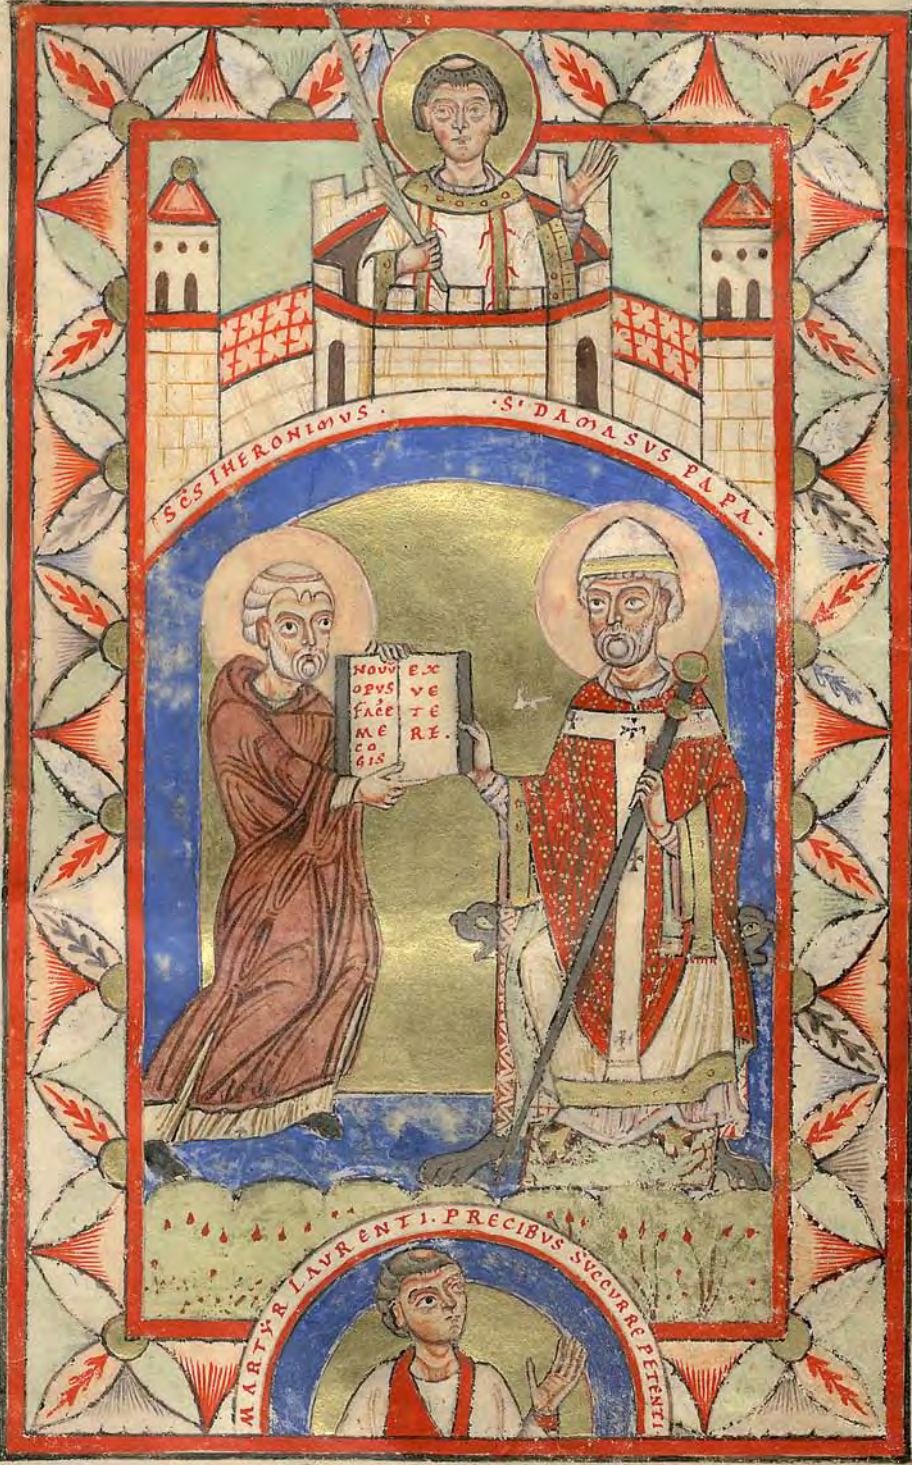 SC̄S IHERONIMVS.
·S· DAMASVS PAPA.
NOVV̄
OPVS
FACE
ME
CO
GIS
EX
VE
TE
RE.
MARTYR LAVRENTI. PRECIBVS SVCCVRRE PETENTI